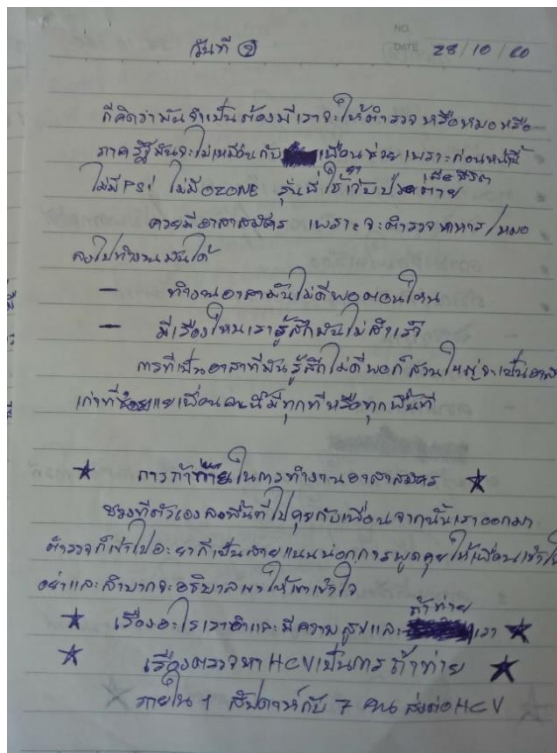 วันที่ ②
NO.
DATE 28/10/20
ก็คิดว่ามันจำเป็นต้องมีเราจะให้ตำรวจหรือหมอหรือ
ภาครัฐมันจะไม่เหมือนกับ เพื่อนช่วยเพราะก่อนหน้านี้
ไม่มี PSI ไม่มี OZONE รุ่นพี่ใช้ เจ็บป่วย ตาย เสียชีวิต
ควรมีอาสาสมัคร เพราะจะตำรวจทหาร/หมอ
ลงไปทำงานมันได้
— ทำงานอาสามันไม่ดีพอตอนไหน
— มีเรื่องไหนเรารู้สึกมันไม่สำเร็จ
การที่เป็นอาสาที่มันรู้สึกไม่ดีพอก็ส่วนใหญ่จะเป็น
เก่าที่ เพื่อน มีทุกที่หรือทุกพื้นที่
★ การท้าทายในการทำงานอาสาสมัคร ★
ช่วงที่ตัวเองลงพื้นที่ไปคุยกับเพื่อนจากนั้นเราออกมา
ตำรวจก็เข้าไป การพูดคุยให้เพื่อนเข้าใจ
และลำบากจะอธิบาย ให้เขาเข้าใจ
★ เรื่องอะไรเราทำและมีความสุขและ ท้าทาย เรา ★
★ เรื่องตรวจหา HCV เป็นการท้าทาย ★
ภายใน 1 สัปดาห์กับ 7 คน ส่งต่อ HCV